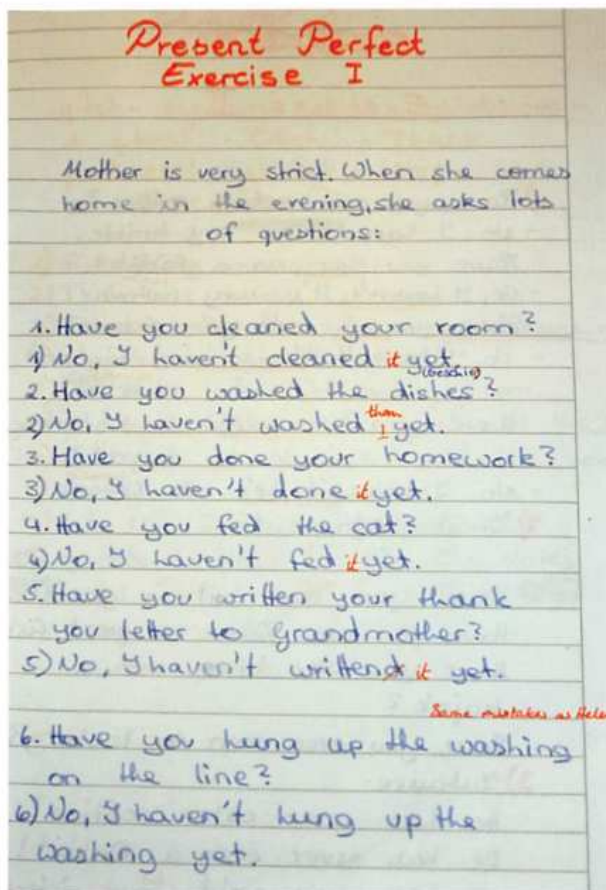 Present Perfect
Exercise I
Mother is very strict. When she comes
home in the evening, she asks lots
of questions:
1. Have you cleaned your room?
1) No, I haven't cleaned it yet.
(Geschirr)
2. Have you washed the dishes?
than
2) No, I haven't washed yet.
3. Have you done your homework?
3) No, I haven't done it yet.
4. Have you fed the cat?
4) No, I haven't fed it yet.
5. Have you written your thank
you letter to Grandmother?
5) No, I haven't written it yet.
Same mistakes as
6. Have you hung up the washing
on the line?
6) No, I haven't hung up the
washing yet.